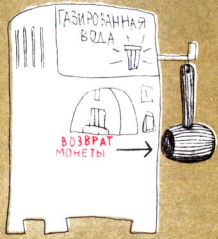 ГАЗИРОВАННАЯ
ВОДА
ВОЗВРАТ
МОНЕТЫ